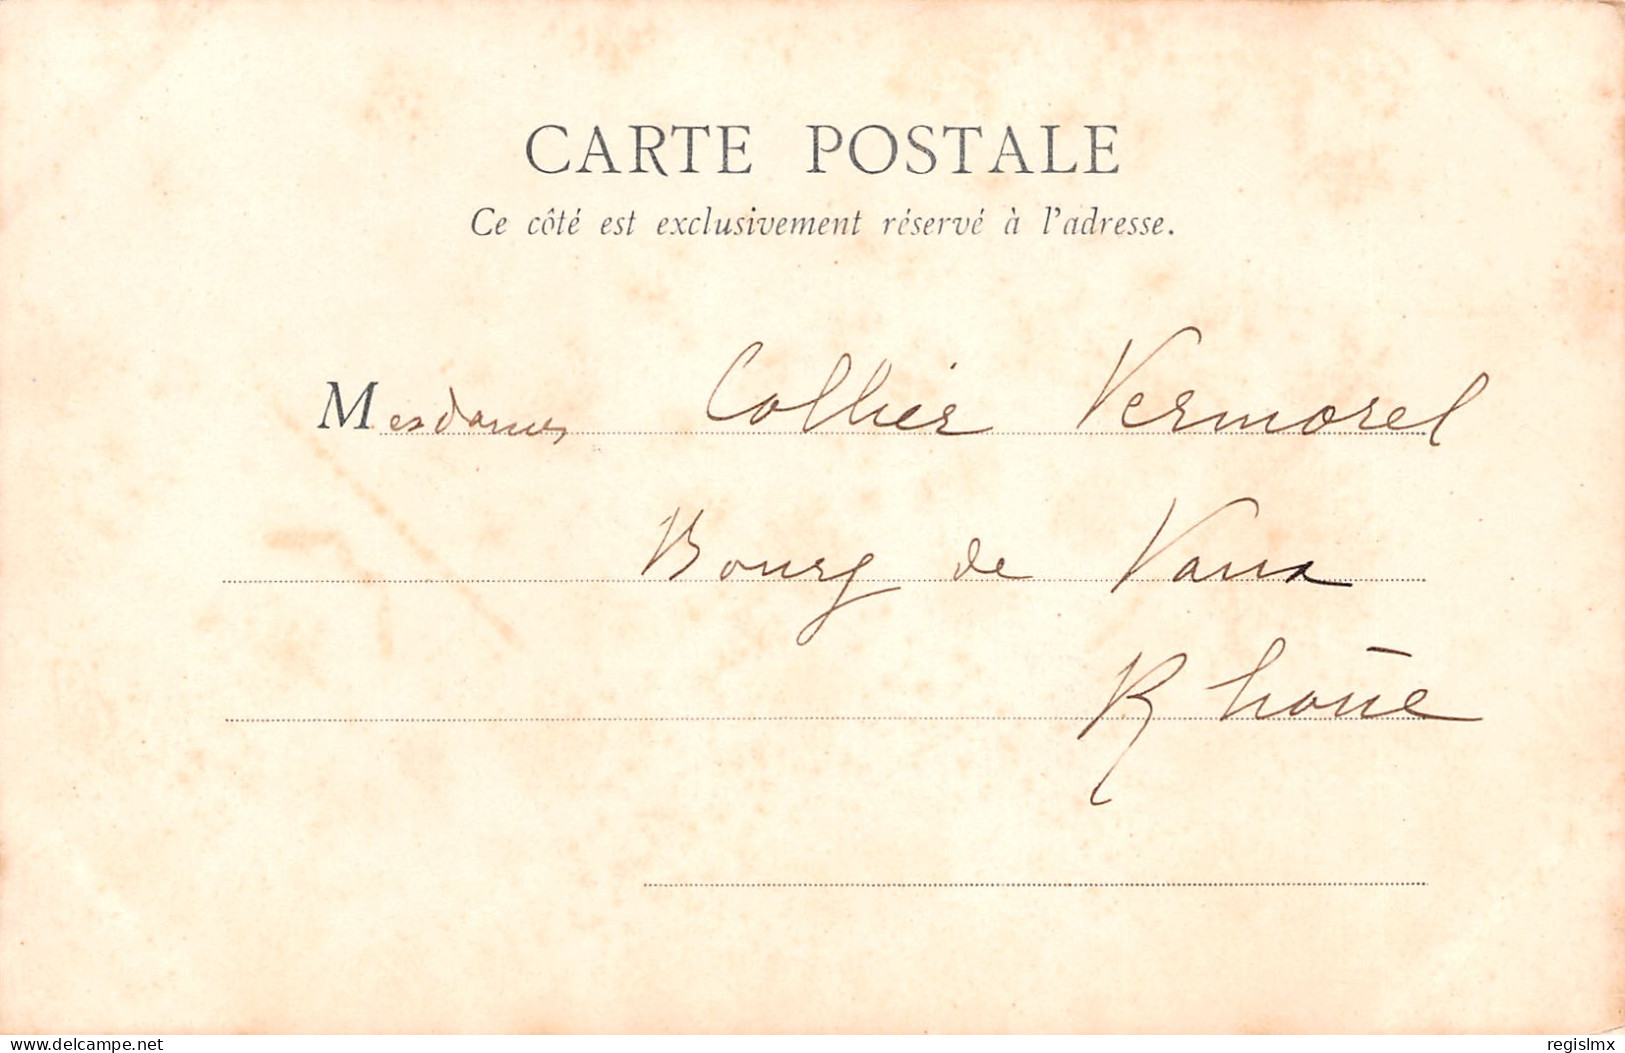 CARTE POSTALE
Ce côté est exclusivement réservé à l'adresse.
Mesdames Collier Vermorel
Bourg de Vaux
Rhône
www.delcampe.net
regislmx